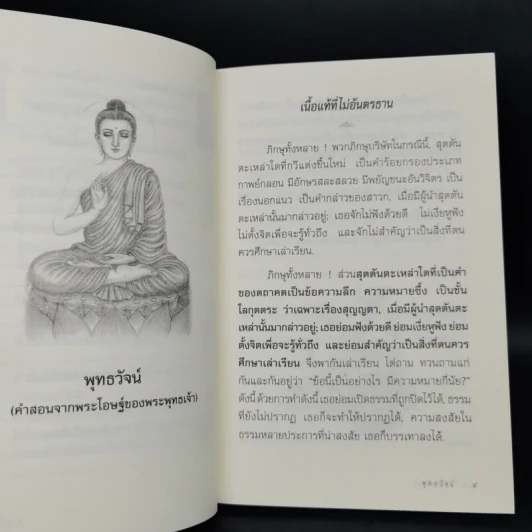 พุทธวัจน์
(คำสอนจากพระโอษฐ์ของพระพุทธเจ้า)
เนื้อแท้ที่ไม่อันตรธาน
ภิกษุทั้งหลาย ! พวกภิกษุบริษัทในกรณีนี้, สุตตัน
ตะเหล่าใดที่กวีแต่งขึ้นใหม่ เป็นคำร้อยกรองประเภท
กาพย์กลอน มีอักษรสละสลวย มีพยัญชนะอันวิจิตร เป็น
เรื่องนอกแนว เป็นคำกล่าวของสาวก, เมื่อมีผู้นำสุตตัน
ตะเหล่านั้นมากล่าวอยู่; เธอจักไม่ฟังด้วยดี ไม่เงี่ยหูฟัง
ไม่ตั้งจิตเพื่อจะรู้ทั่วถึง และจักไม่สำคัญว่าเป็นสิ่งที่ตน
ควรศึกษาเล่าเรียน.
ภิกษุทั้งหลาย ! ส่วนสุตตันตะเหล่าใดที่เป็นคำ
ของตถาคตเป็นข้อความลึก ความหมายซึ้ง เป็นชั้น
โลกุตตระ ว่าเฉพาะเรื่องสุญญตา, เมื่อมีผู้นำสุตตันตะ
เหล่านั้นมากล่าวอยู่; เธอย่อมฟังด้วยดี ย่อมเงี่ยหูฟัง ย่อม
ตั้งจิตเพื่อจะรู้ทั่วถึง และย่อมสำคัญว่าเป็นสิ่งที่ตนควร
ศึกษาเล่าเรียน จึงพากันเล่าเรียน ไต่ถาม ทวนถามแก่
กันและกันอยู่ว่า “ข้อนี้เป็นอย่างไร มีความหมายกี่นัย?”
ดังนี้ ด้วยการทำดังนี้ เธอย่อมเปิดธรรมที่ถูกปิดไว้ได้, ธรรม
ที่ยังไม่ปรากฏ เธอก็จะทำให้ปรากฏได้, ความสงสัยใน
ธรรมหลายประการที่น่าสงสัย เธอก็บรรเทาลงได้.
พุทธวัจน์